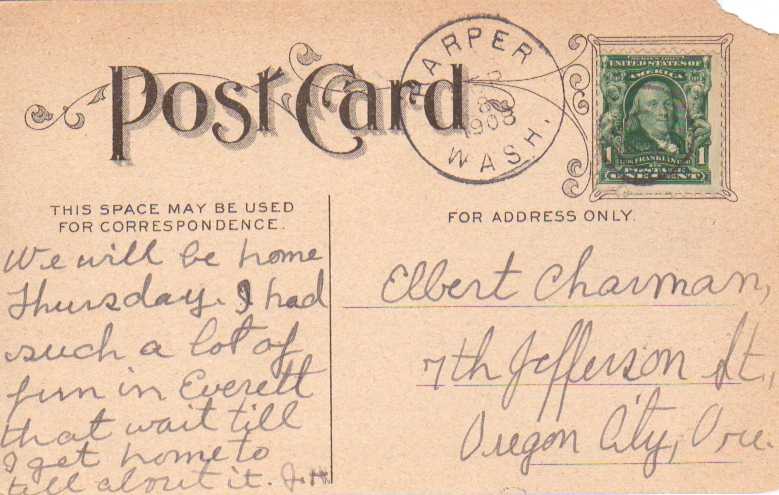 POST CARD
HARPER
1908
WASH.
SERIES 1902
UNITED STATES OF
AMERICA
1 FRANKLIN 1
POSTAGE
ONE CENT
THIS SPACE MAY BE USED
FOR CORRESPONDENCE.
FOR ADDRESS ONLY.
We will be home
Thursday. I had
such a lot of
fun in Everett
that wait till
I get home to
tell about it. J.H
Elbert Charman,
7th Jefferson St.,
Oregon City, Ore.